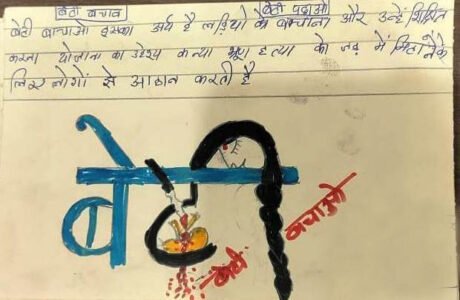 बेटी बचाव बेटी पढाओ
बेटी बाचाओ इसका अर्थ है लडियो के बाचाना और उन्हें शिक्षित
करना योजना का उद्देश्य कन्या भ्रूण हत्या को जड़ में मिटानेके
लिए लोगों से आहान करती है
बेटी
बेटी बचाओ